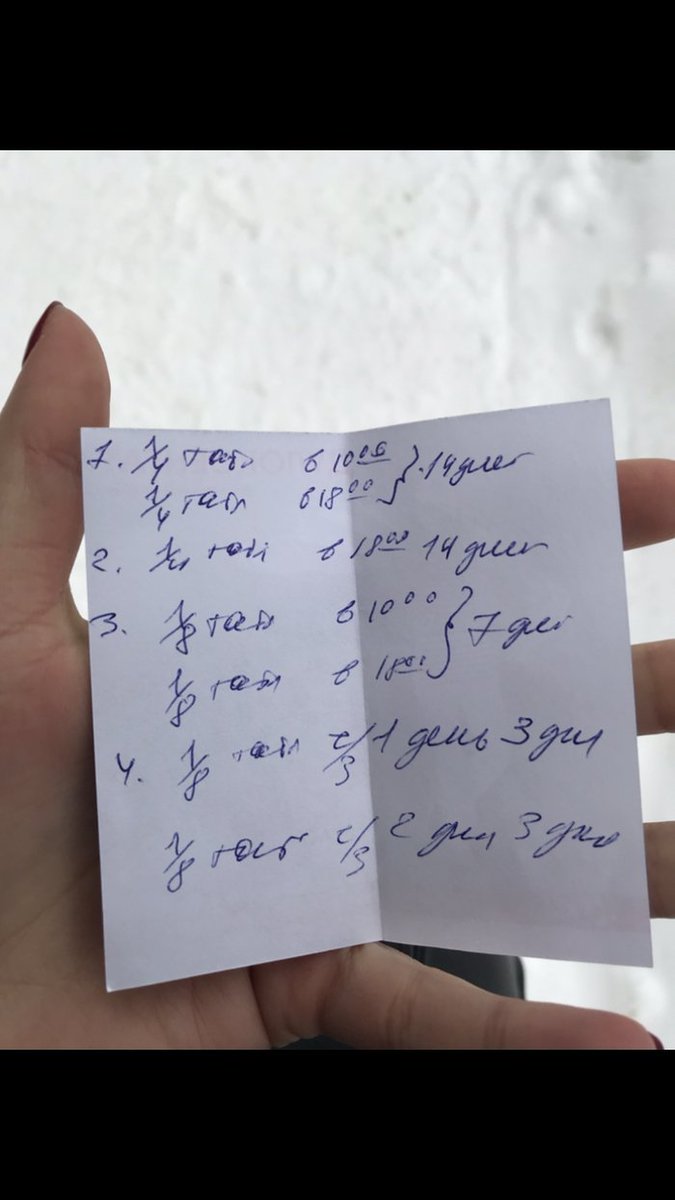 1. 1/4 табл в 10⁰⁰ } 14 дней
1/4 табл в 18⁰⁰
2. 1/4 табл в 18⁰⁰ 14 дней
3. 1/8 табл в 10⁰⁰ } 7 дней
1/8 табл в 18⁰⁰
4. 1/8 табл ч/з 1 день 3 дня
1/8 табл ч/з 2 дня 3 дня